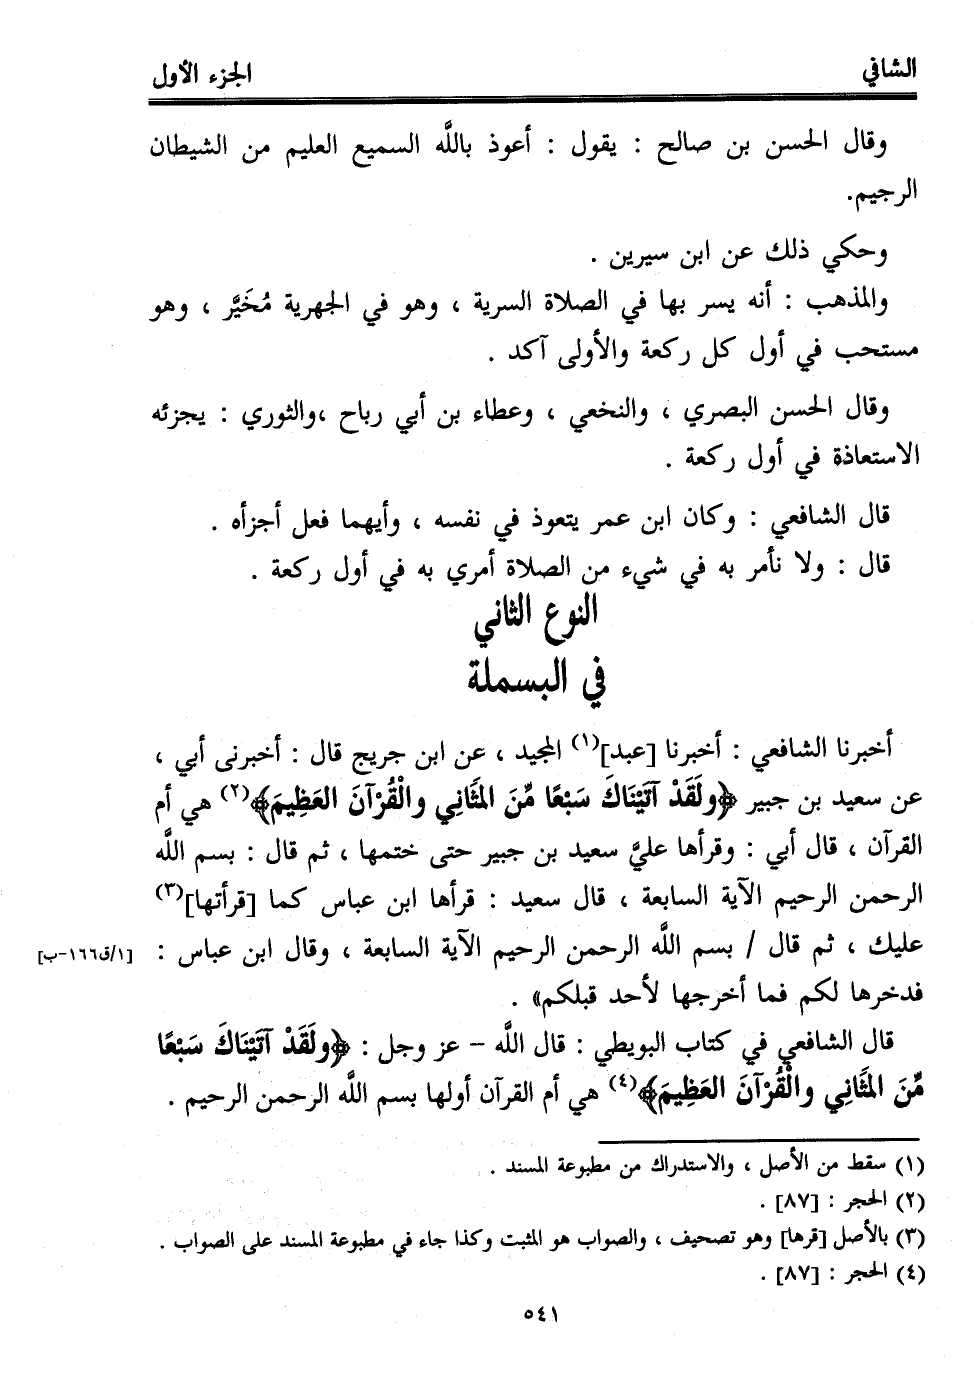 الشافي
الجزء الأول
وقال الحسن بن صالح : يقول : أعوذ باللَّه السميع العليم من الشيطان
الرجيم.
وحكي ذلك عن ابن سيرين .
والمذهب : أنه يسر بها في الصلاة السرية ، وهو في الجهرية مُخَيَّر ، وهو
مستحب في أول كل ركعة والأولى آكد .
وقال الحسن البصري ، والنخعي ، وعطاء بن أبي رباح ،والثوري : يجزئه
الاستعاذة في أول ركعة .
قال الشافعي : وكان ابن عمر يتعوذ في نفسه ، وأيهما فعل أجزأه .
قال : ولا نأمر به في شيء من الصلاة أمري به في أول ركعة .
النوع الثاني
في البسملة
أخبرنا الشافعي : أخبرنا [عبد](١) المجيد ، عن ابن جريج قال : أخبرنى أبي ،
عن سعيد بن جبير ﴿ولَقَدْ آتَيْنَاكَ سَبْعًا مِّنَ المَثَانِي والْقُرْآنَ العَظِيمَ﴾(٢) هي أم
القرآن ، قال أبي : وقرأها عليَّ سعيد بن جبير حتى ختمها ، ثم قال : بسم اللَّه
الرحمن الرحيم الآية السابعة ، قال سعيد : قرأها ابن عباس كما [قرأتها](٣)
عليك ، ثم قال / بسم اللَّه الرحمن الرحيم الآية السابعة ، وقال ابن عباس : [١/ق١٦٦-ب]
فدخرها لكم فما أخرجها لأحد قبلكم» .
قال الشافعي في كتاب البويطي : قال اللَّه – عز وجل : ﴿ولَقَدْ آتَيْنَاكَ سَبْعًا
مِّنَ المَثَانِي والْقُرْآنَ العَظِيمَ﴾(٤) هي أم القرآن أولها بسم اللَّه الرحمن الرحيم .
(١) سقط من الأصل ، والاستدراك من مطبوعة المسند .
(٢) الحجر : [٨٧] .
(٣) بالأصل [قرها] وهو تصحيف ، والصواب هو المثبت وكذا جاء في مطبوعة المسند على الصواب .
(٤) الحجر : [٨٧] .
٥٤١